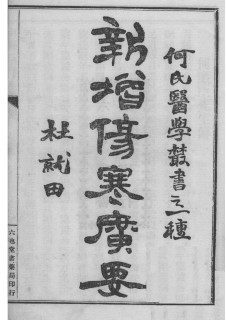 何氏醫學叢書之一種
新增傷寒廣要
杜就田
六也堂書藥局印行